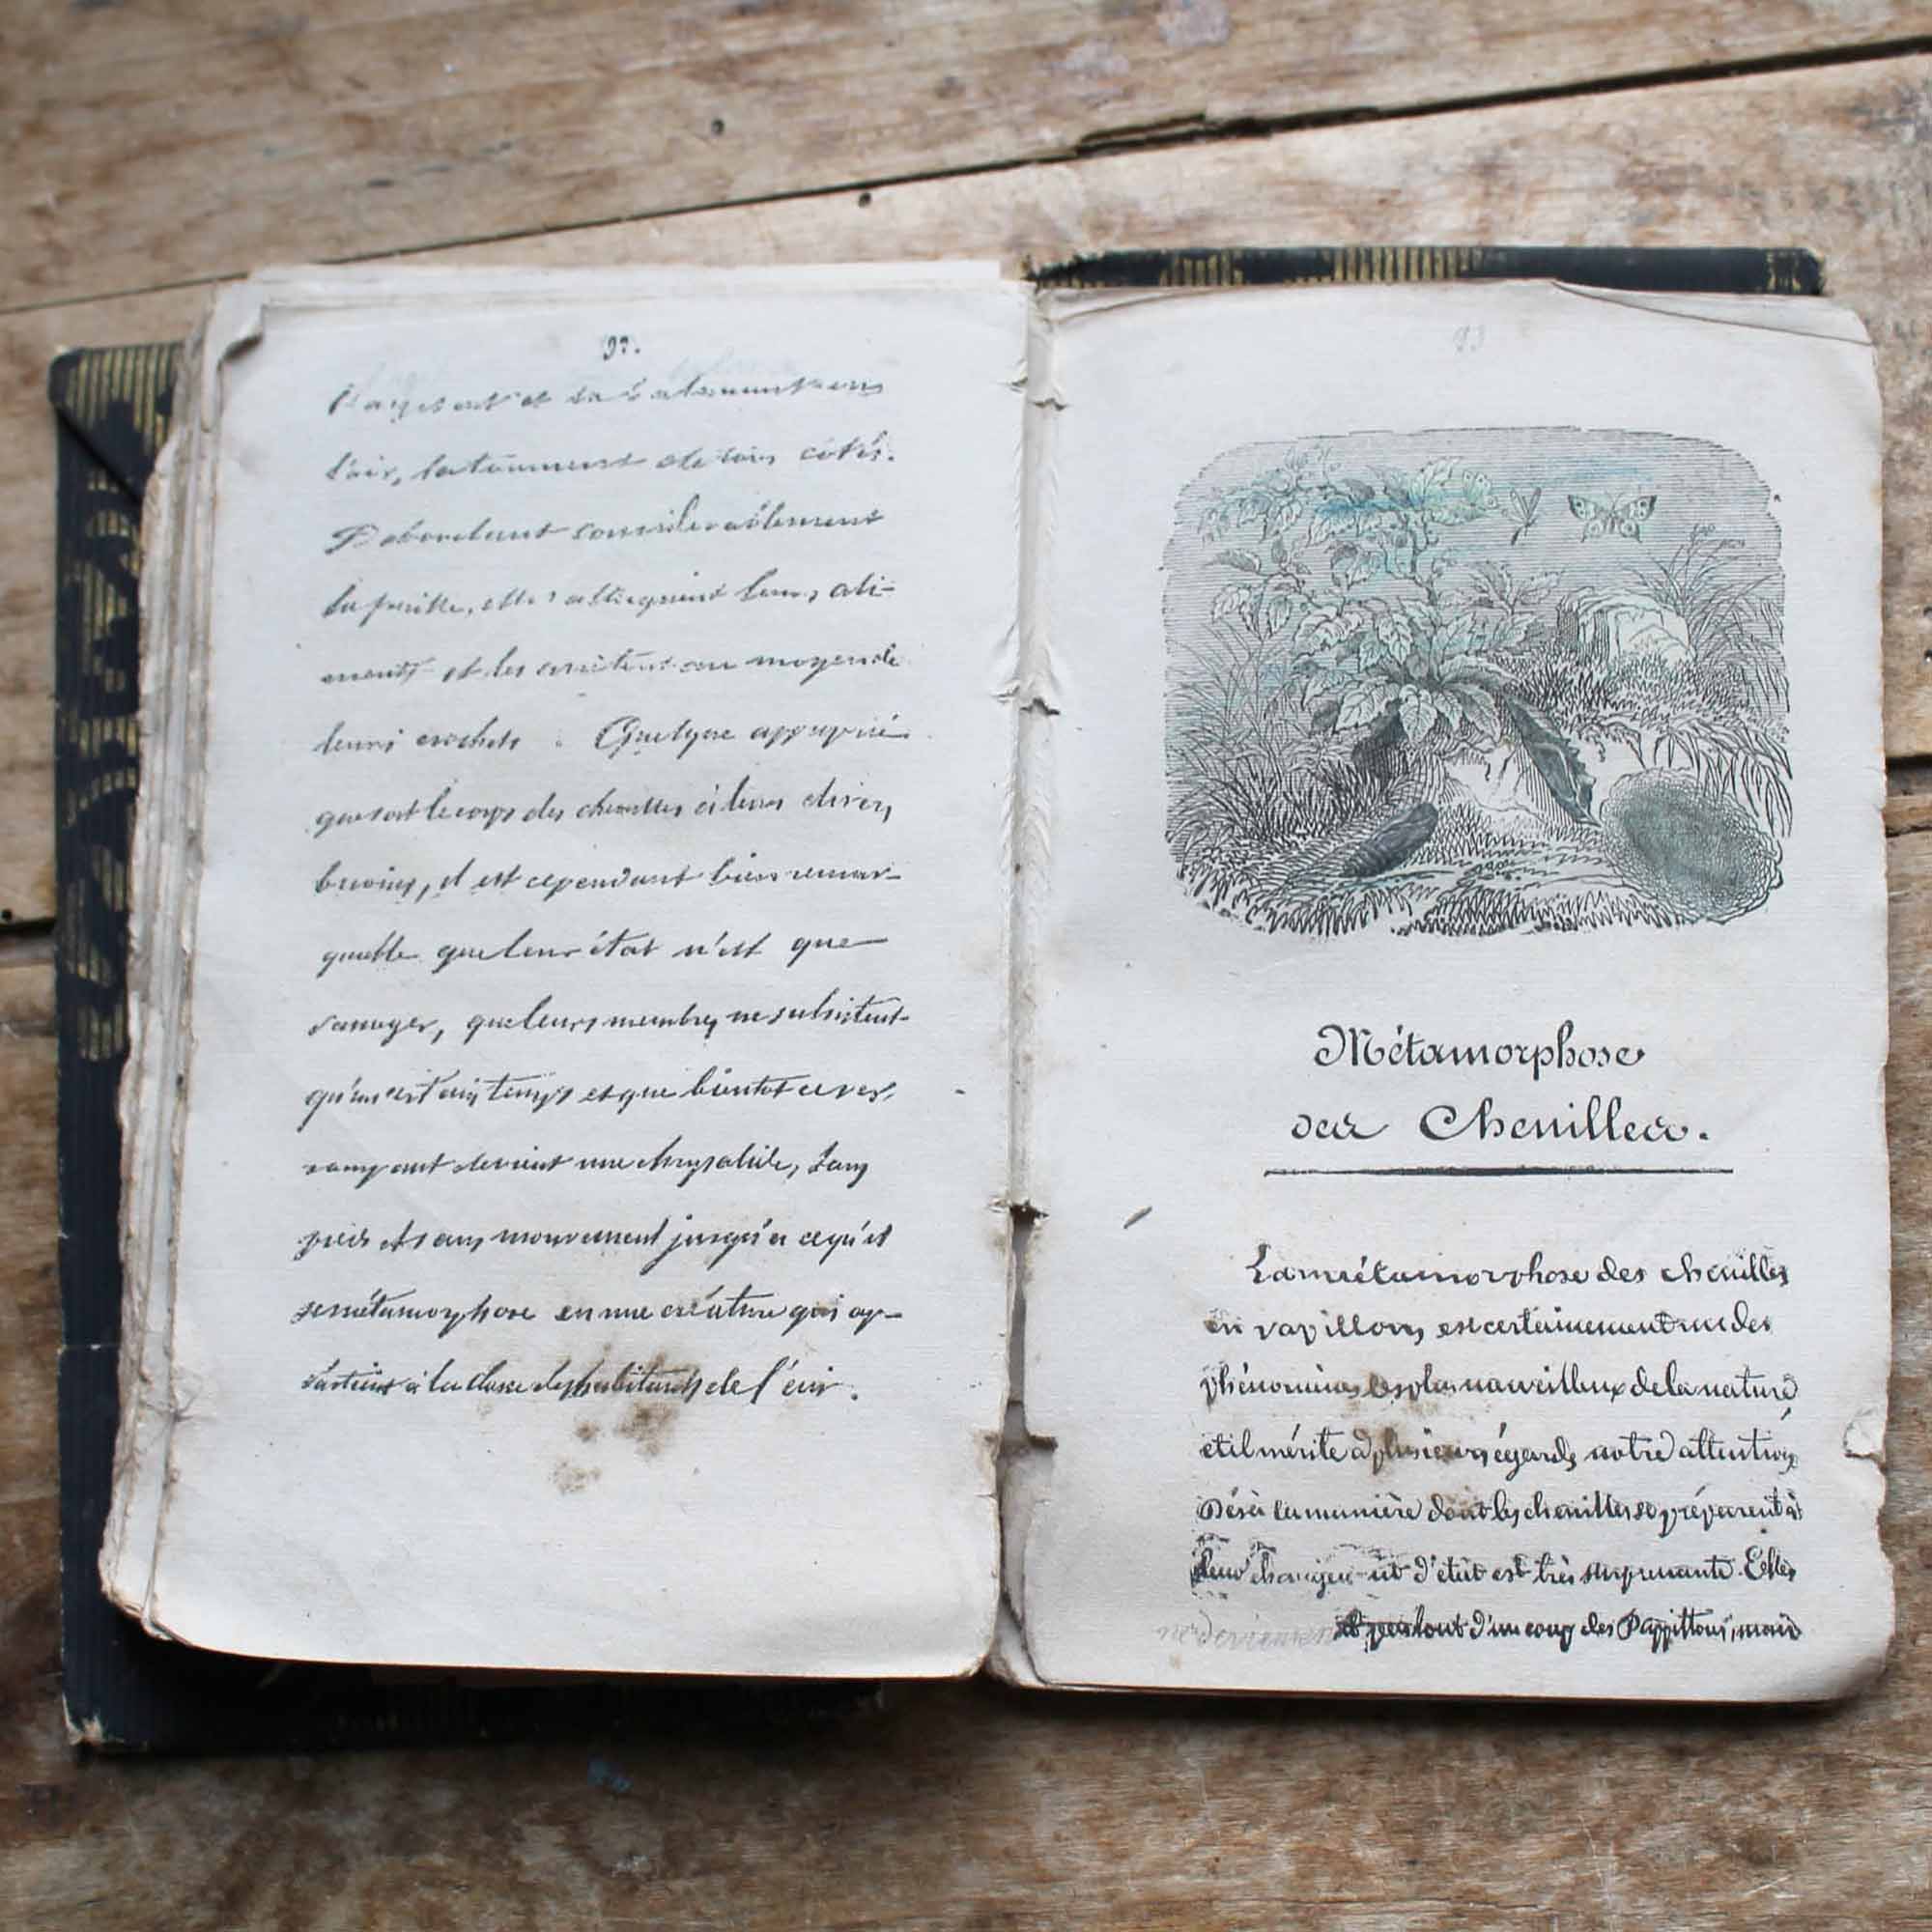 92.
l'air, la tournent de tous côtés.
Débordant considérablement
la feuille, elles atteignent leurs ali-
ments et les arrêtent au moyen de
leurs crochets. Quelque approprié
que soit le corps des chenilles à leurs divers
besoins, il est cependant bien remar-
quable que leur état n'est que
passager, que leurs membres ne subsistent
qu'un certain temps et que bientôt ce ver
rampant devient une chrysalide, sans
pieds et sans mouvement jusqu'à ce qu'il
se métamorphose en une créature qui ap-
partient à la classe des habitants de l'air.
Métamorphose
des Chenilles.
La métamorphose des chenilles
en papillons, est certainement un des
phénomènes les plus merveilleux de la nature
et il mérite à plusieurs égards notre attention
Déjà la manière dont les chenilles se préparent à
leur changement d'état est très surprenante. Elles
ne deviennent d'un coup des Papillons, mais